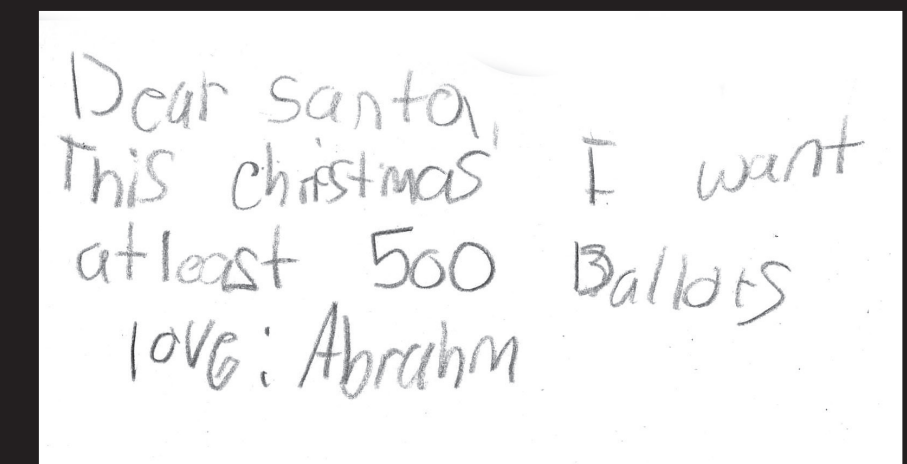 Dear Santa,
This christmas I want
atleast 500 Ballots
love: Abrahm